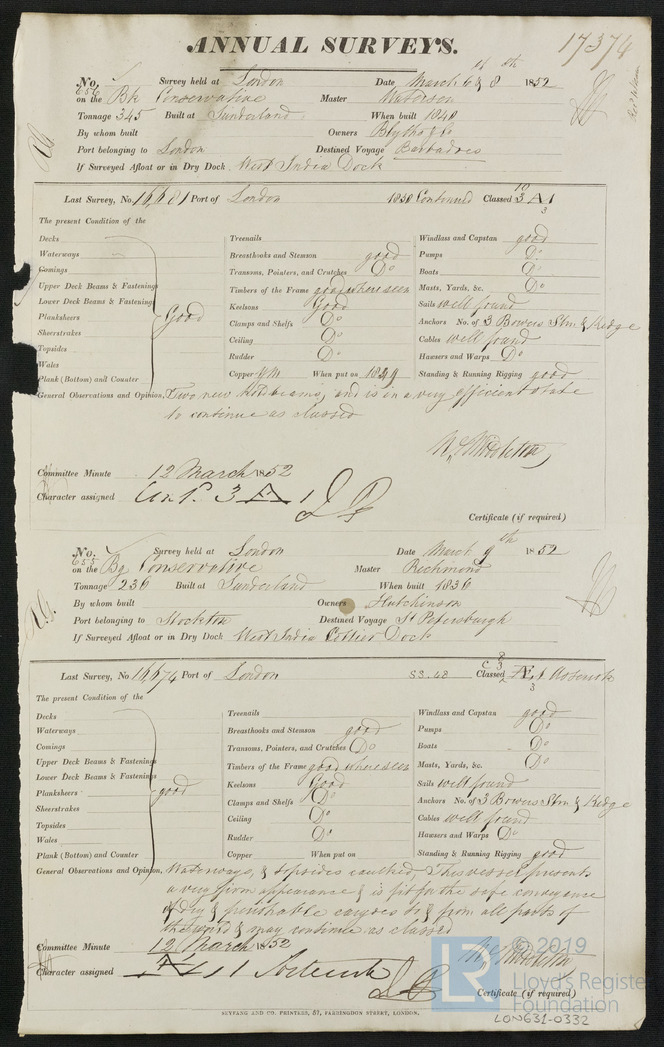 17374
ANNUAL SURVEYS.
No. 656 Survey held at London Date March 6 & 8th 1852
on the Bk Conservative Master
Tonnage 345 Built at Sunderland When built 1840
By whom built Owners Blyth & Co
Port belonging to London Destined Voyage Barbadoes
If Surveyed Afloat or in Dry Dock West India Dock
Last Survey, No. 16681 Port of London 1850 Continued Classed 3 A 1
The present Condition of the
Decks Treenails Windlass and Capstan good
Waterways Breasthooks and Stemson good Pumps Do
Comings Transoms, Pointers, and Crutches Do Boats Do
Upper Deck Beams & Fastenings Timbers of the Frame good where seen Masts, Yards, &c. Do
Lower Deck Beams & Fastening Keelsons Good Sails well found
Planksheers Good Clamps and Shelfs Do Anchors No. of 3 Bowers Strm & Kedge
Sheerstrakes Ceiling Do Cables well found
Topsides Rudder Do Hawsers and Warps Do
Wales Copper YM When put on 1849 Standing & Running Rigging good
Plank (Bottom) and Counter
General Observations and Opinion, Two new beams, and is in a very efficient state
to continue as classed
W. Middleton
Committee Minute 12 March 1852
Character assigned 3 A 1
Certificate (if required)
No. 655 Survey held at London Date March 9th 1852
on the Bg Conservative Master Richmond
Tonnage 236 Built at Sunderland When built 1836
By whom built Owners Hutchinson
Port belonging to Stockton Destined Voyage St Petersburgh
If Surveyed Afloat or in Dry Dock West India Dock
Last Survey, No 16674 Port of London SS. 48 Classed Æ 1 Asterisk
The present Condition of the
Decks Treenails Windlass and Capstan good
Waterways Breasthooks and Stemson good Pumps Do
Comings Transoms, Pointers, and Crutches Do Boats Do
Upper Deck Beams & Fastenings Timbers of the Frame good where seen Masts, Yards, &c. Do
Lower Deck Beams & Fastening Keelsons Good Sails well found
Planksheers good Clamps and Shelfs Do Anchors No. of 3 Bowers Strm & Kedge
Sheerstrakes Ceiling Do Cables well found
Topsides Rudder Do Hawsers and Warps Do
Wales Copper When put on Standing & Running Rigging good
Plank (Bottom) and Counter
General Observations and Opinion, Waterways, & topsides caulked, This vessel presents
a very firm appearance & is fit for the safe conveyance
of dry & perishable cargoes to & from all parts of
the world & may continue as classed
Committee Minute 12 March 1852
W. Middleton
Character assigned Æ 1 Asterisk
Certificate (if required)
SEYFANG AND CO. PRINTERS, 57, FARRINGDON STREET, LONDON.
LR © 2019
Lloyd's Register
Foundation
LON631-0332